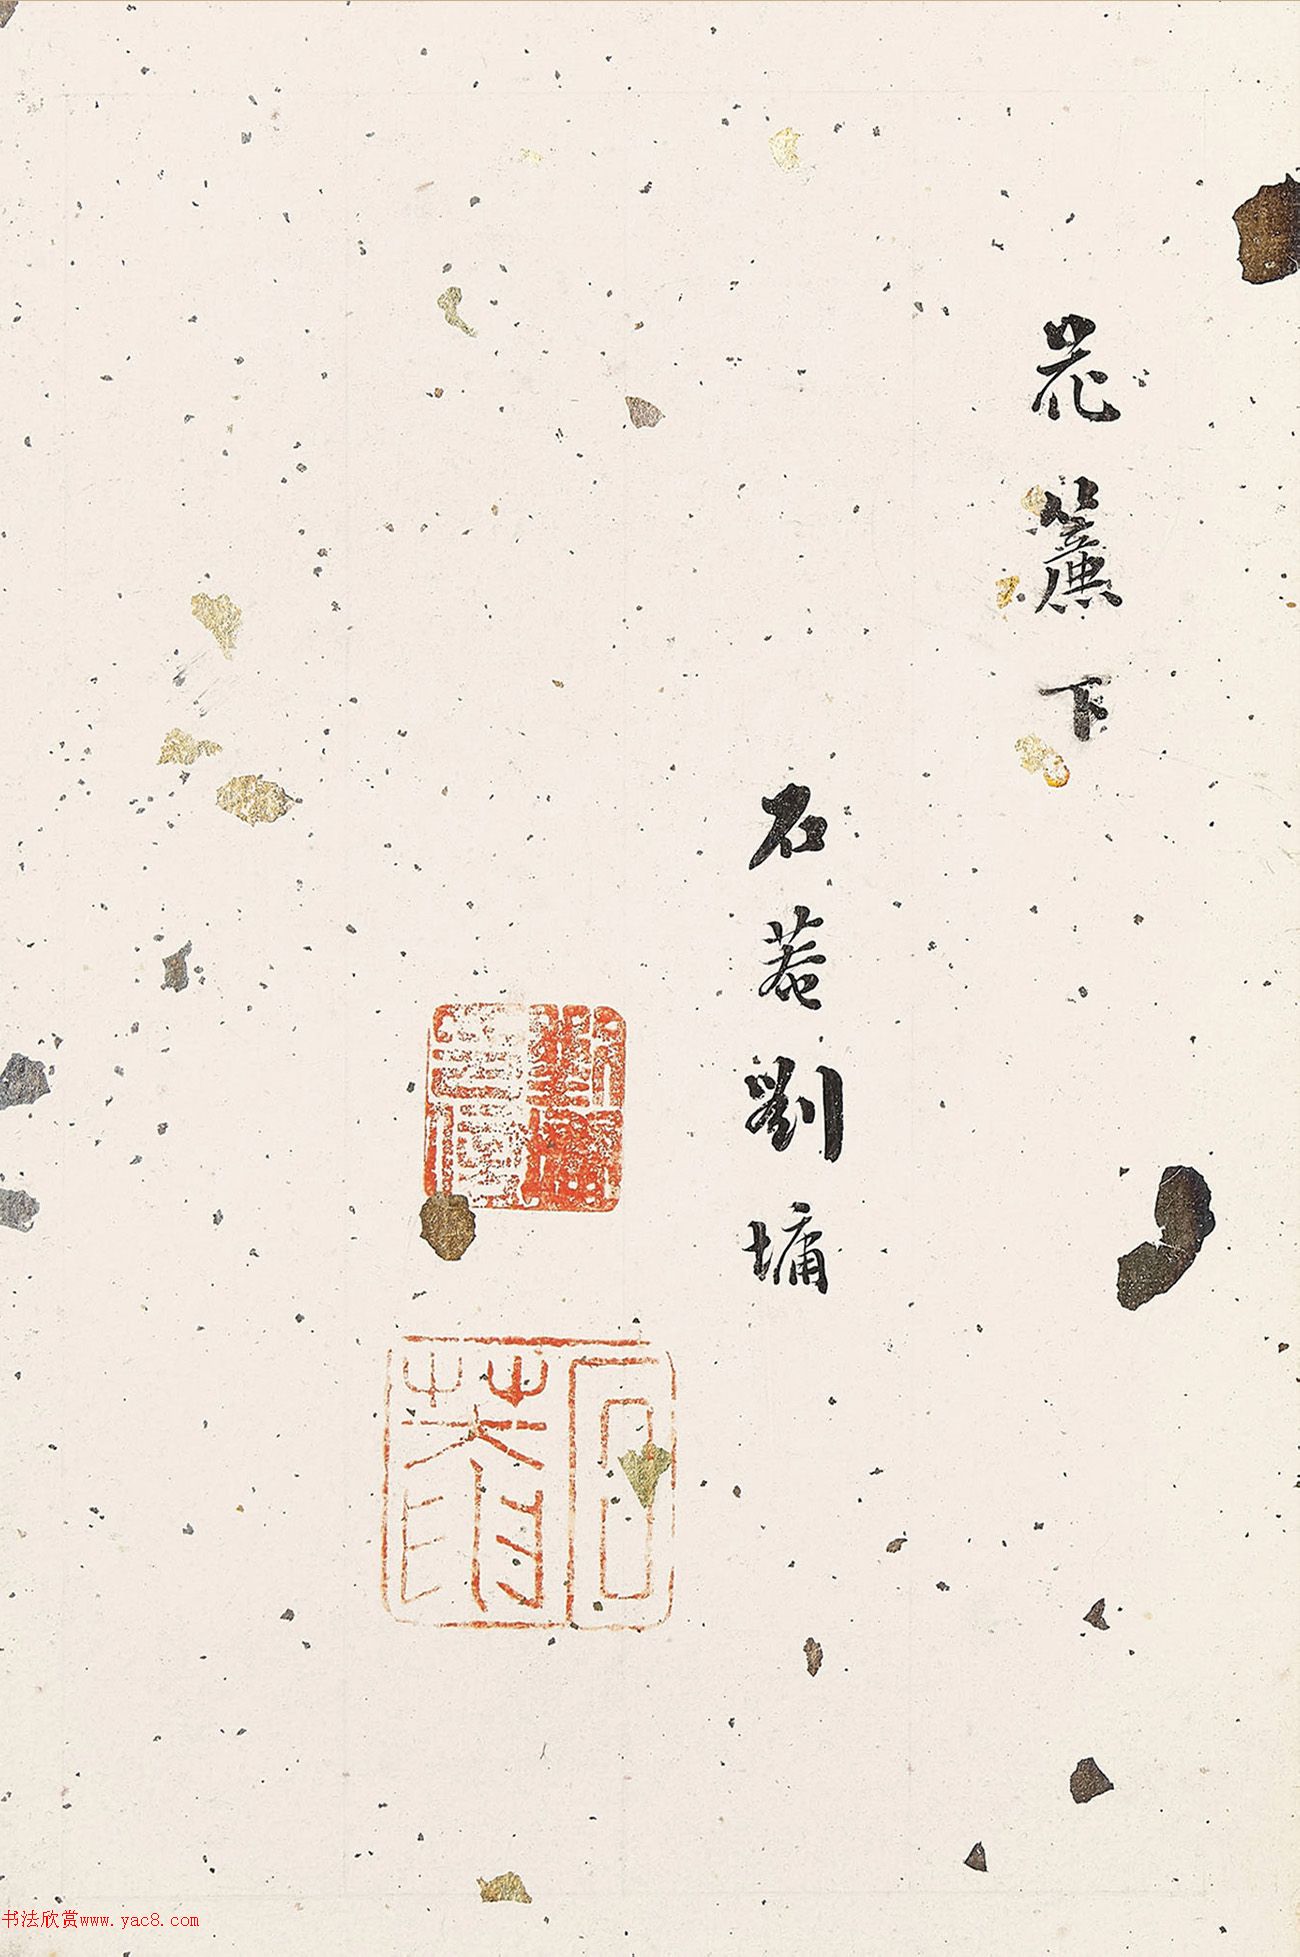 花簾下
石菴劉墉
劉墉
石菴
书法欣赏www.yac8.com